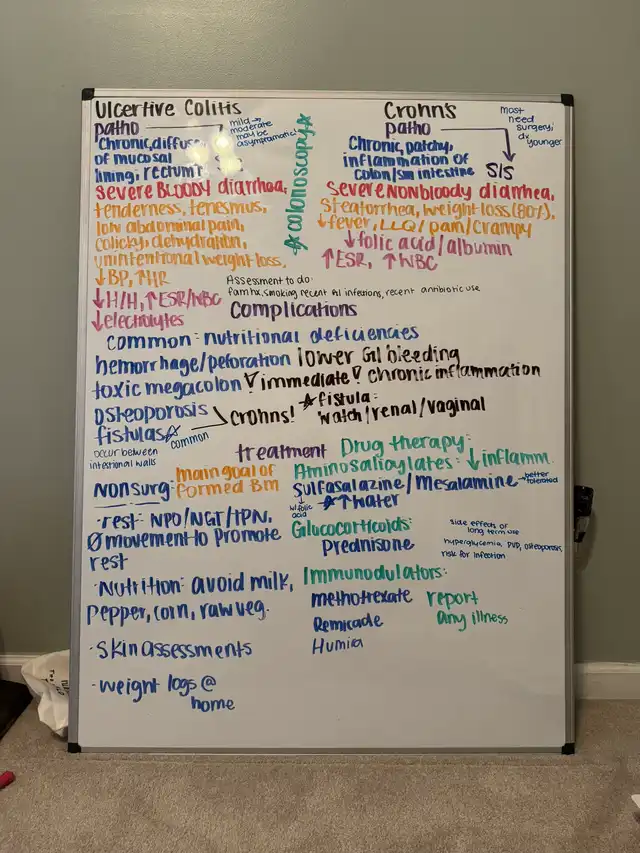 Ulcertive Colitis
patho
mild →
moderate
may be
asympramatic!
Chronic, diffuse,
of mucosal
lining, rectum↑
severe BLOODY diarrhea,
tenderness, tenesmus,
low abdominal pain,
colicky, dehydration,
unintentional weight loss,
↓BP, ↑HR
↓H/H, ↑ESR/WBC
↓electrolytes
☆colonoscopy☆
Cronn's
patho
Most
need
surgery;
dx
younger
Chronic, patchy,
inflammation of
colon/sm intestine
S/S
Severe NONbloody diarrhea,
Steatorrhea, weight loss (80%),
↓fever, LLQ/ pain/crampy
↓folic acid/albumin
↑ESR, ↑WBC
Assessment to do:
fam hx, smoking recent AI infections, recent antibiotic use
Complications
common: nutritional deficiencies
hemorrhage/peforation lower GI bleeding
toxic megacolon ! immediate ! chronic inflammation
osteoporosis
fistulas☆
common
crohns!
☆fistula:
watch/renal/vaginal
occur between
intestional walls
treatment
nonsurg:
main goal of
formed BM
·rest: NPO/NGT/TPN,
Ø movement to promote
rest
·Nutrition: avoid milk,
pepper, corn, raw veg.
·skin assessments
·weight logs @
home
Drug therapy:
Aminosalicylates: ↓inflamm.
sulfasalazine/Mesalamine → better
tolerated
w/ folic
acid
☆↑water
Glucocorticoids:
Prednisone
side effects of
long term use
hyperglycemia, PUD, osteoporosis,
risk for infection
Immunodulators:
methotrexate
Remicade
Humira
report
any illness